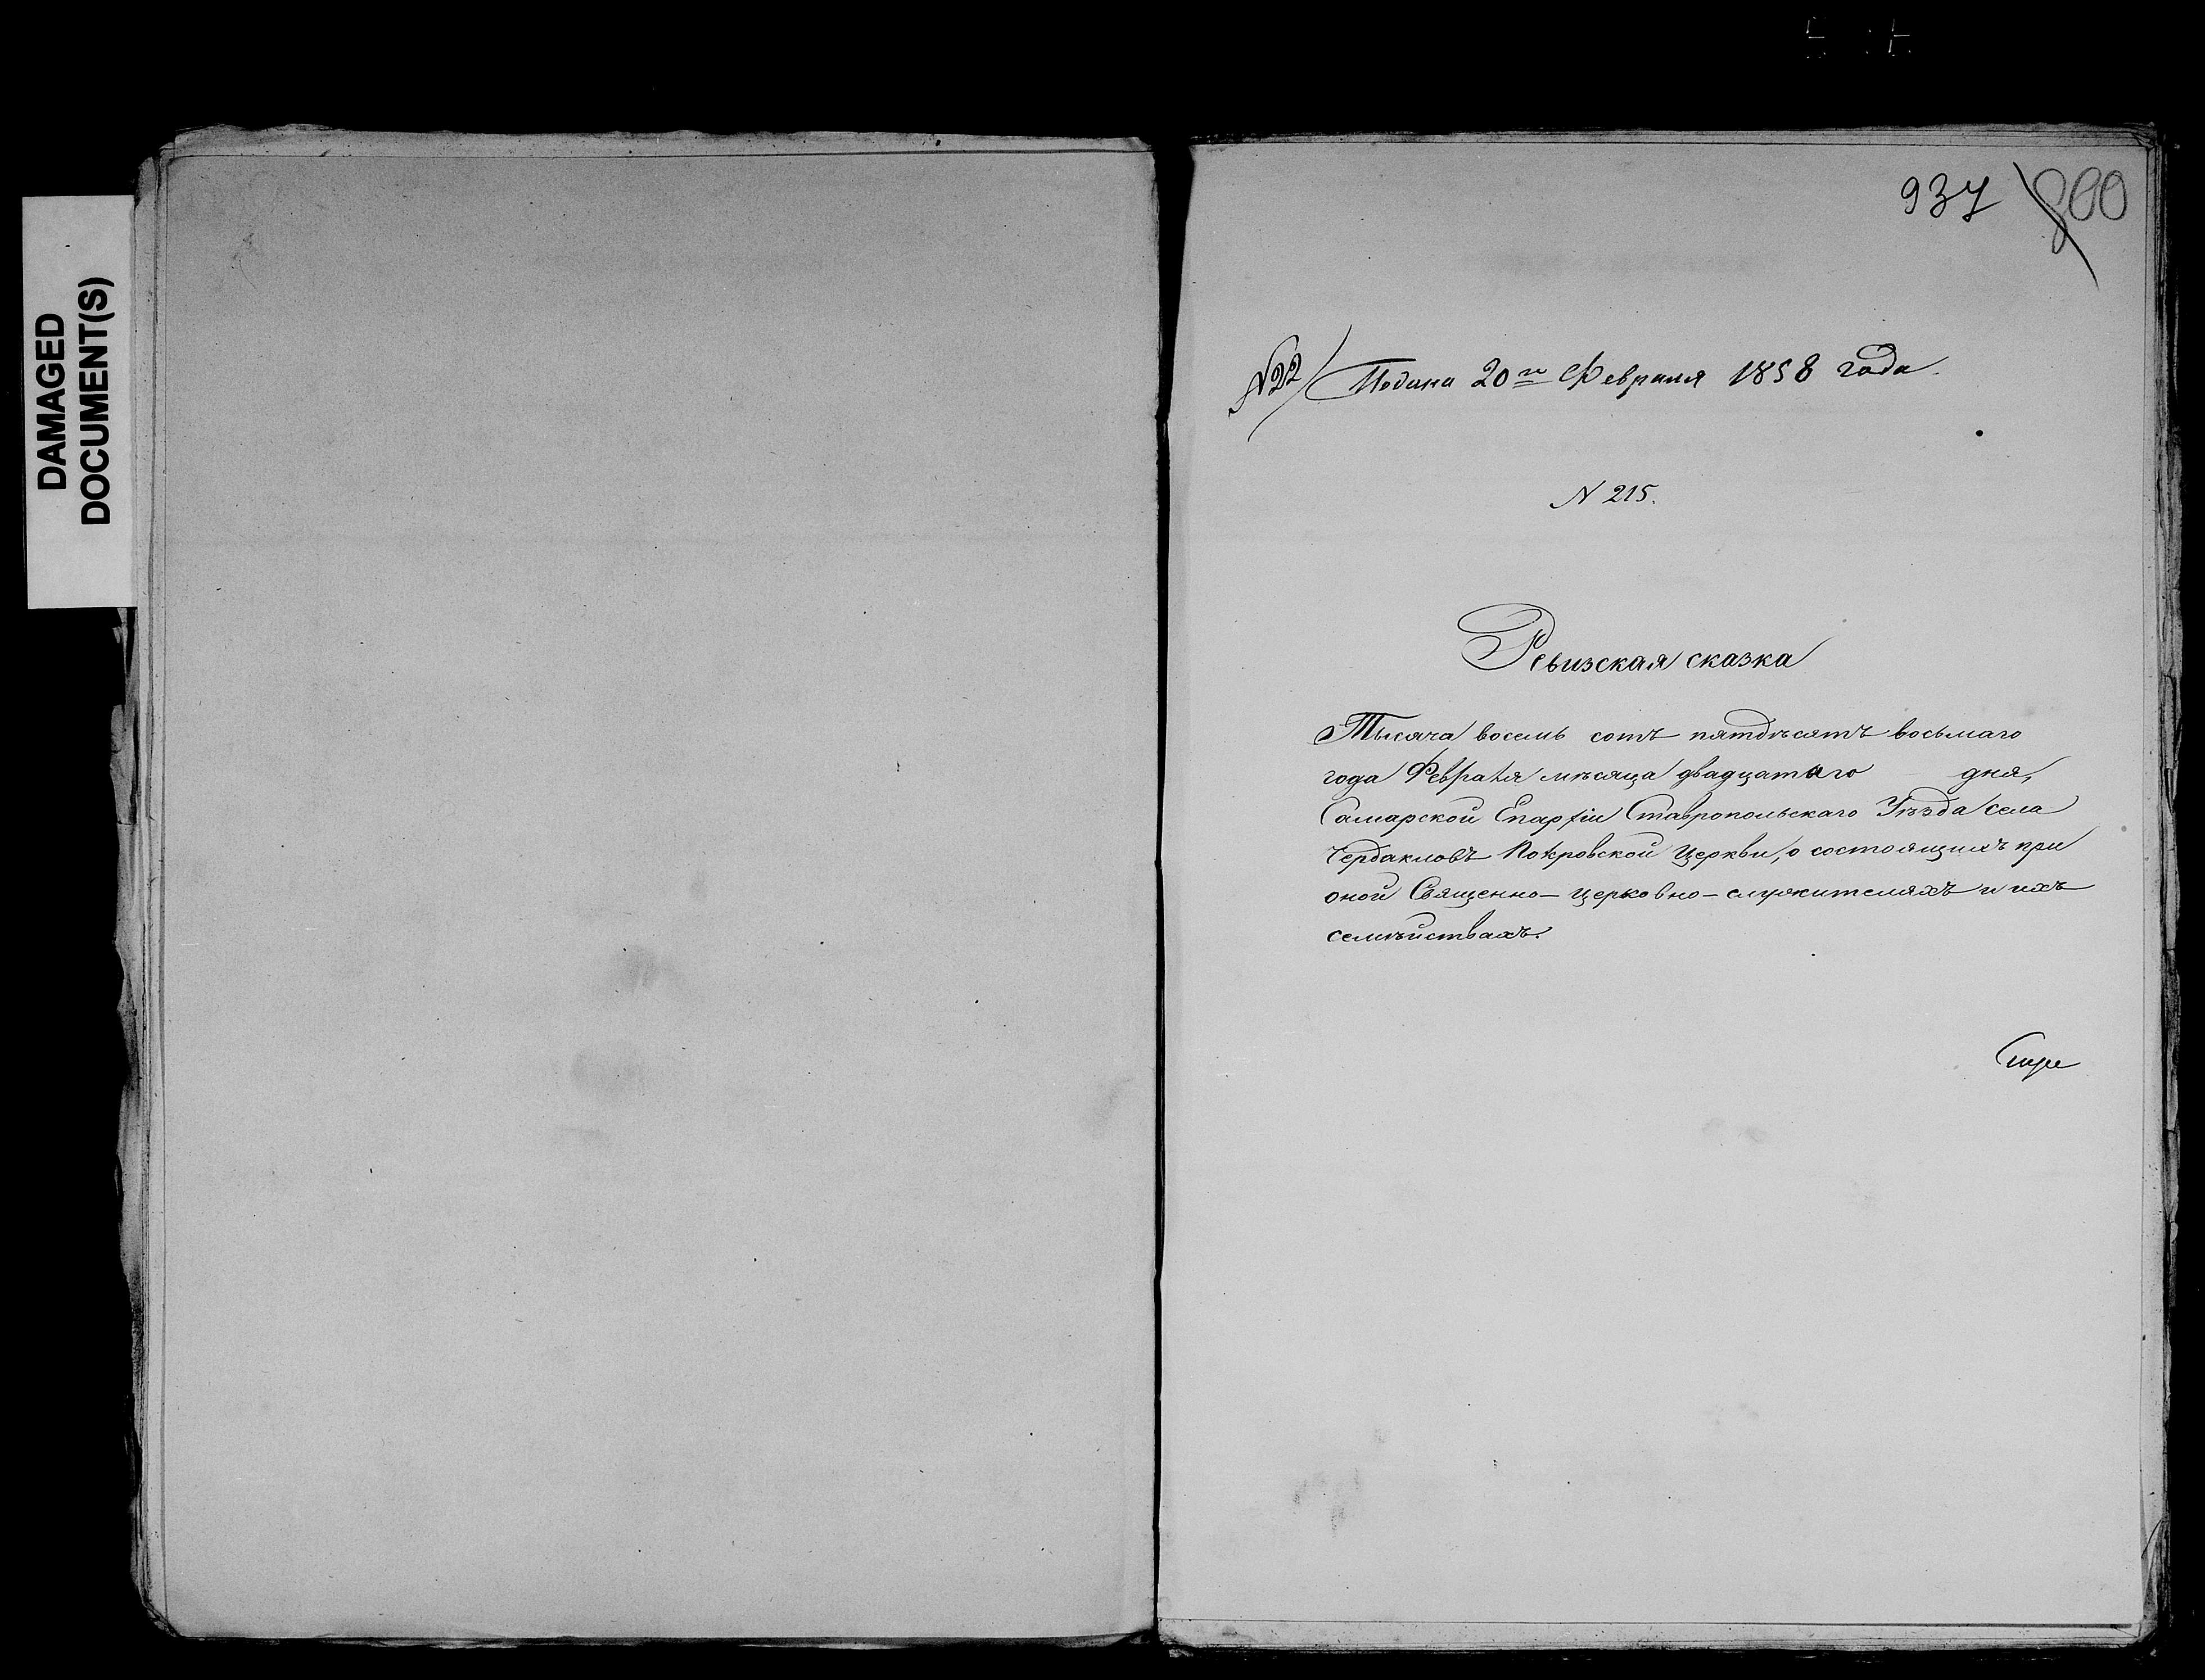 DAMAGED
DOCUMENT(S)
937 800
N22 Подана 20го Февраля 1858 года.
N 215.
Ревизская сказка
Тысяча восемь сотъ пятдѣсятъ восьмаго
года Февраля мѣсяца двадцатаго дня,
Самарской Епархіи Ставропольскаго Уѣзда села
Чердакловъ Покровской Церкви, о состоящихъ при
оной Священно-церковно-служителяхъ и ихъ
семѣйствахъ.